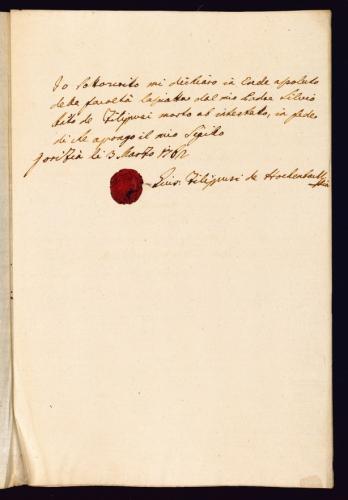 Io Sottoscrito mi dichiaro in Erede assoluto
della facoltà lasciatta dal mio Padre Silvio
de Filipusi morto ab intestato, in fede
di che apongo il mio Sigillo
Gorizia li 3 Marzo 1762
Filipusi de